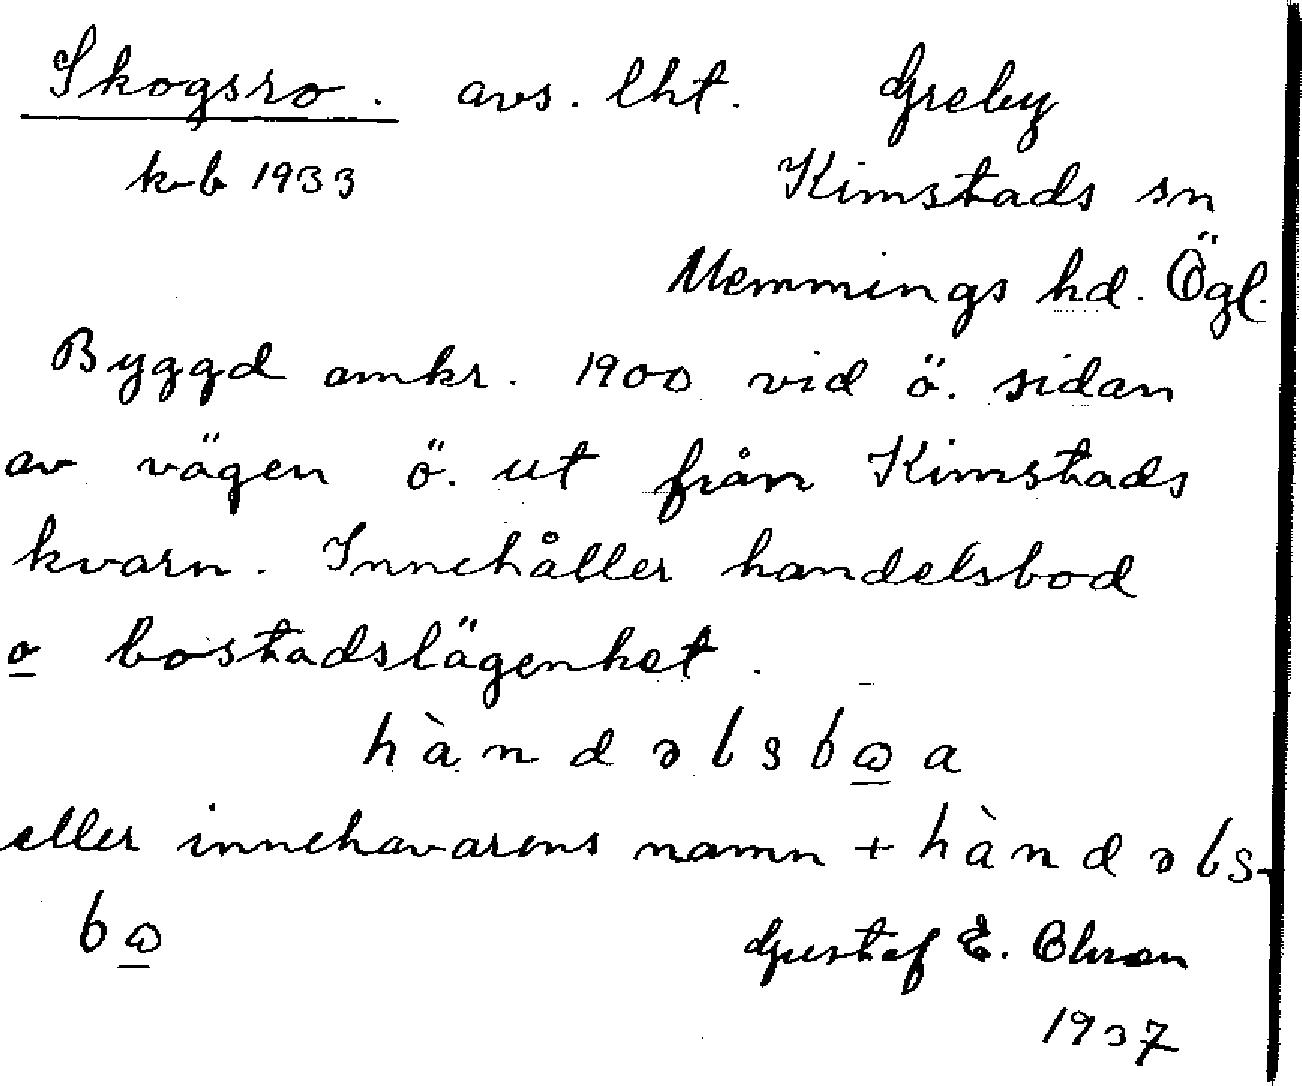 Skogsro. avs. lht. Greby
kb 1933 Kimstads sn
Memmings hd. Ögl.
Byggd omkr. 1900 vid ö. sidan
av vägen ö. ut från Kimstads
kvarn. Innehåller handelsbod
o bostadslägenhet.
hàndəlsbɷa
eller innehavarens namn + hàndəls-
bɷ
Gustaf E. Olsson
1937